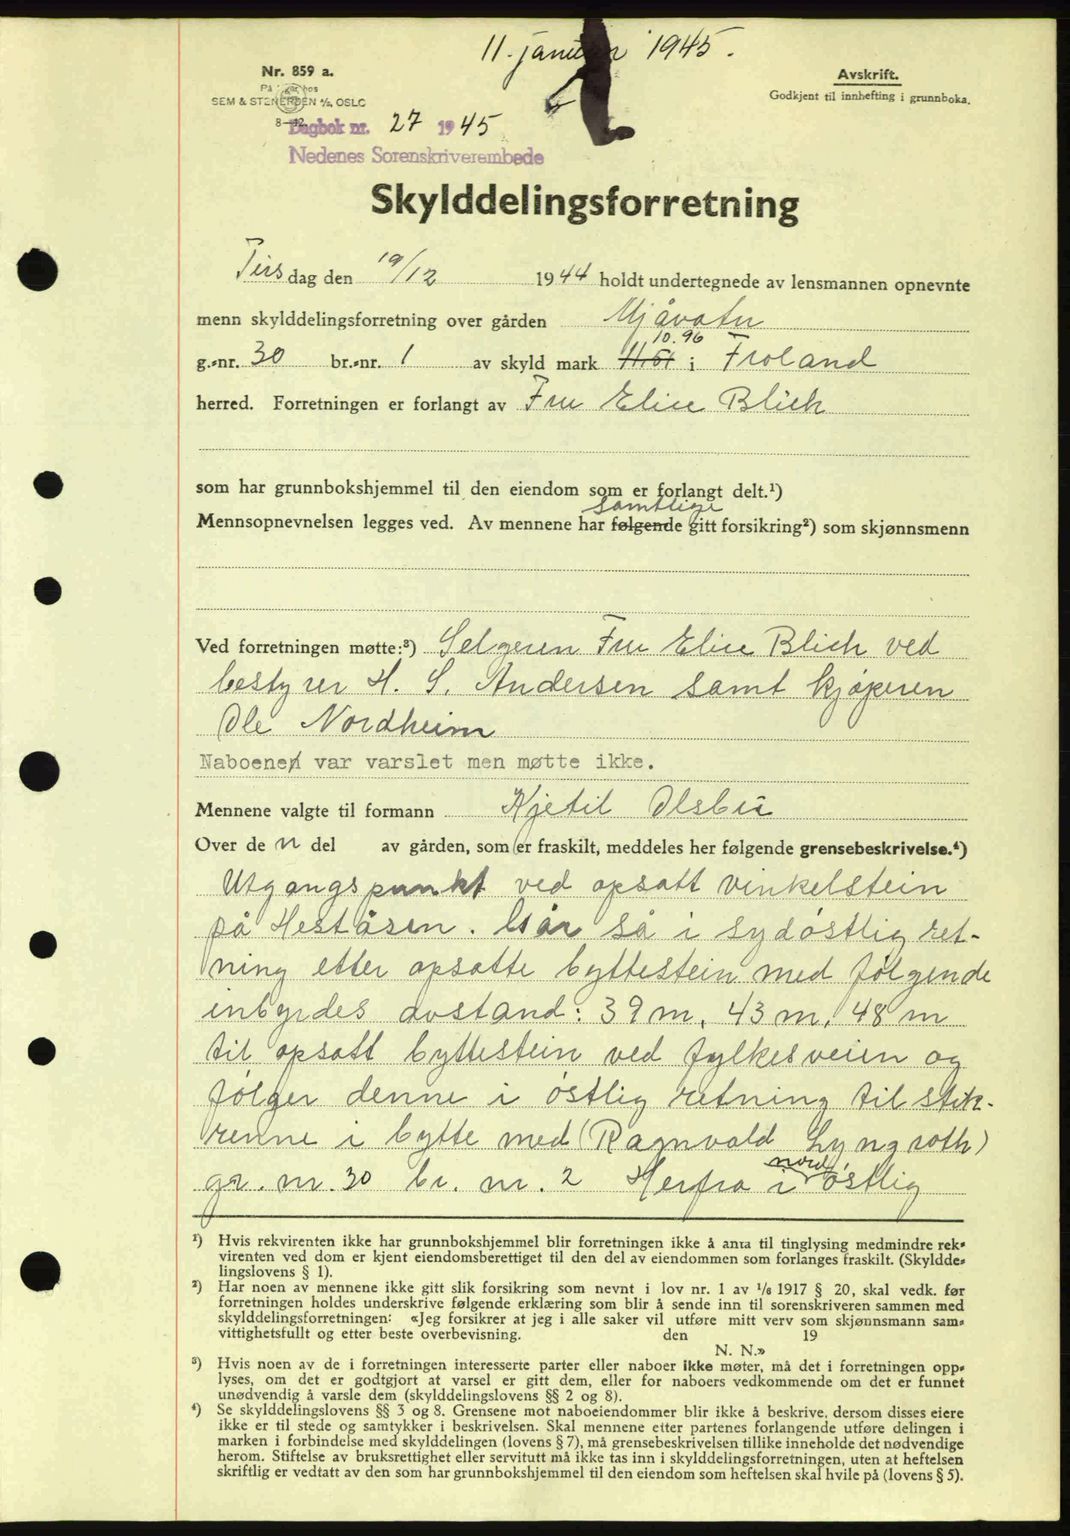 11. januar 1945.
Nr. 859 a.
På lager hos
SEM & STENERSEN A/S, OSLO
8-42.
Avskrift.
Godkjent til innhefting i grunnboka.
Dagbok nr. 27 1945
Nedenes Sorenskriverembede
Skylddelingsforretning
Tirsdag den 19/12 1944 holdt undertegnede av lensmannen opnevnte
menn skylddelingsforretning over gården Mjåvatn
10.96
g.-nr. 30 br.-nr. 1 av skyld mark i Froland
herred. Forretningen er forlangt av Fru Elise Blich
som har grunnbokshjemmel til den eiendom som er forlangt delt.¹)
samtlige
Mennsopnevnelsen legges ved. Av mennene har følgende gitt forsikring²) som skjønnsmenn
Ved forretningen møtte:³) Selgeren Fru Elise Blich ved
bestyrer H. S. Andersen samt kjøperen
Ole Nordheim
Naboene var varslet men møtte ikke.
Mennene valgte til formann Kjetil Olsbu
Over de n del av gården, som er fraskilt, meddeles her følgende grensebeskrivelse.⁴)
Utgangspunkt ved opsatt vinkelstein
på Heståsen. Går så i sydøstlig ret-
ning etter opsatte byttestein med følgende
inbyrdes avstand: 39 m, 43 m, 48 m
til opsatt byttestein ved fylkesveien og
følger denne i østlig retning til stik-
renne i bytte med (Ragnvald Lyngroth)
gr. nr. 30 br. nr. 2 Herfra i nordøstlig
¹) Hvis rekvirenten ikke har grunnbokshjemmel blir forretningen ikke å anta til tinglysing medmindre rek-
virenten ved dom er kjent eiendomsberettiget til den del av eiendommen som forlanges fraskilt. (Skyldde-
lingslovens § 1).
²) Har noen av mennene ikke gitt slik forsikring som nevnt i lov nr. 1 av 1/6 1917 § 20, skal vedk. før
forretningen holdes underskrive følgende erklæring som blir å sende inn til sorenskriveren sammen med
skylddelingsforretningen: «Jeg forsikrer at jeg i alle saker vil utføre mitt verv som skjønnsmann sam-
vittighetsfullt og etter beste overbevisning. den 19
N. N.»
³) Hvis noen av de i forretningen interesserte parter eller naboer ikke møter, må det i forretningen opp-
lyses, om det er godtgjort at varsel er gitt dem, eller for naboers vedkommende om det er funnet
unødvendig å varsle dem (skylddelingslovens §§ 2 og 8).
⁴) Se skylddelingslovens §§ 3 og 8. Grensene mot naboeiendommer blir ikke å beskrive, dersom disses eiere
ikke er til stede og samtykker i beskrivelsen. Skal mennene etter partenes forlangende utføre delingen i
marken i forbindelse med skylddelingen (lovens § 7), må grensebeskrivelsen tillike inneholde det nødvendige
herom. Stiftelse av bruksrettighet eller servitutt må ikke tas inn i skylddelingsforretningen, uten at heftelsen
skriftlig er vedtatt av den som har grunnbokshjemmel til den eiendom som heftelsen skal hvile på (lovens § 5).